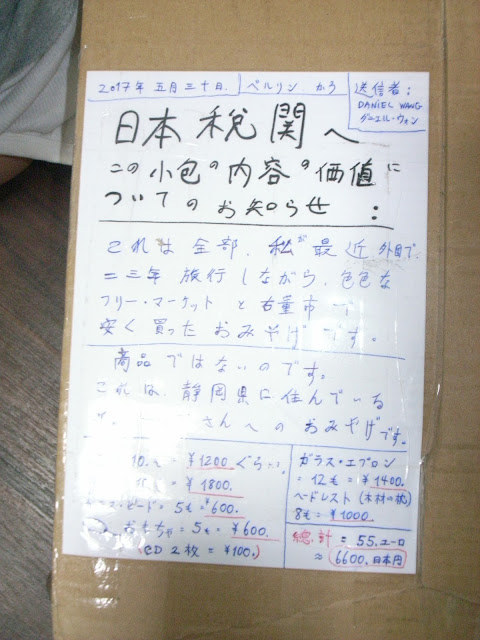 2017年 五月 三十日. ベルリン から
送信者:
DANIEL WANG
ダニエル・ウォン
日本 税 関 へ
この 小包の 内容 の 価値 に
ついて の お知らせ :
これ は 全部, 私が 最近 外国で
二三年 旅行 しながら, 色色な
フリー・マーケット と 古董市 で
安く 買った おみやげ です.
商品 ではないのです.
これは, 静岡県に 住んでいる
さんへ の おみやげです.
10.€ = ¥1200 ぐらい.
= ¥1800.
ビード = 5€ = ¥600.
おもちゃ = 5€ = ¥600.
CD 2枚 = ¥100.
ガラス・エプロン
= 12€ = ¥1400.
ヘドレスト (木材の枕)
8€ = ¥1000
總.計 = 55.ユーロ
≈ 6600.日本円